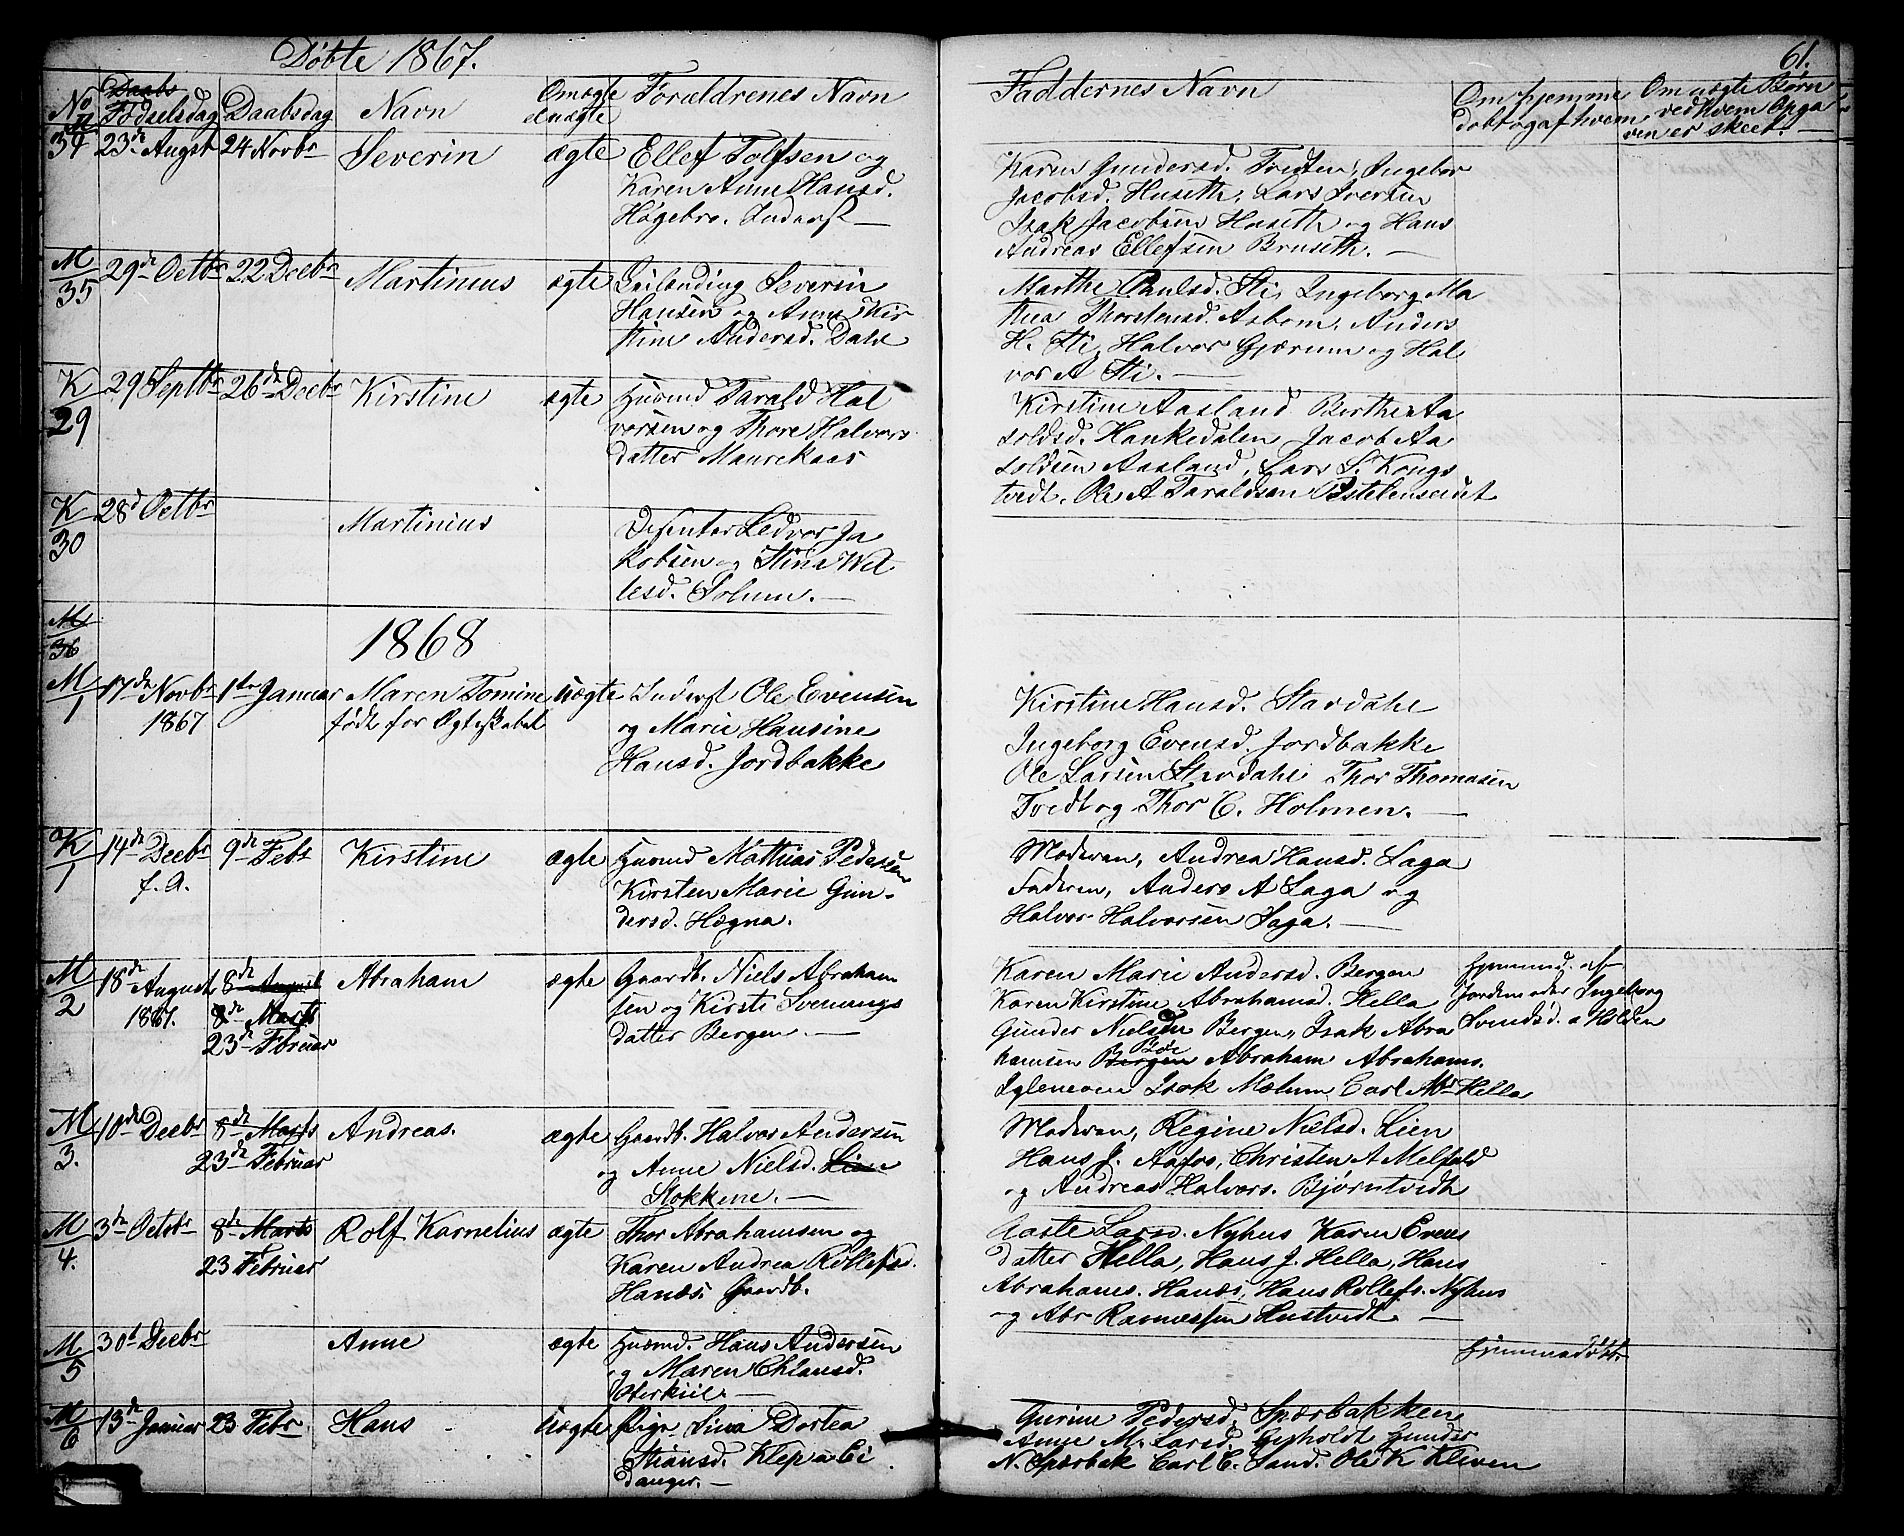 Døbte 1867.
61.
No Daabs Fødselsdag Daabsdag Navn Om ægte el uægte Forældrenes Navn Faddernes Navn Om hjemme døbt og af hvem Om uægte Børn ved hvem Opgaven er skeet.
M 34 23de Augst 24 Novbr Severin ægte Ellef Tolfsen og
Karen Anne Hansd.
Høgebro. Inderst —
Karen Gundersd. Tvedten, Ingebor
Jacobsd. Huseth, Lars Iversen
Isak Jacobsen Huseth og Hans
Andreas Ellefsen Bruseth. —
M 35 29de Octbr 22 Decbr Martinius ægte Leilending Severin
Hansen og Anne Kir
stine Andersd. Dale
Marthe Paulsd. Sti, Ingeborg Ma
thea Thorstensd. Asbom, Anders
H. Sti, Halvor Gjærum og Hal
vor A Sti. —
K 29 29 Septbr 26de Decbr Kirstine ægte Huusmd Tarald Hal
vorsen og Thore Halvors
datter Maurekaas
Kirstine Aasland Berthe Aa
soldsd. Hankedalen, Jacob Aa
soldsen Aasland, Lars S. Kongs
tvedt, Ole A Taraldsen
K 30 28d Octbr Martinius
Ledvor Ja
kobsen og Stine
Solum. —
M 36
1868
M 1 17de Novbr 1ste Januar Maren Tomine uægte Inderst Ole Evensen
1867 født før Ægteskabet og Marie Hansine
Hansd. Jordbakke
Kirstine Hansd. Stavdahl
Ingeborg Evensd. Jordbakke
Ole Larsen Stavdahl Thor Thomasen
Tvedt og Thor C. Holmen. —
K 1 14de Decbr 9de Febr Kirstine ægte Huusmd Mathias Pedersen
f. A. Kirsten Marie Gun-
dersd. Høgna.
Moderen, Andrea Hansd. Laga
Faderen, Anders A Laga og
Halvor Halvorsen Saga. —
M 2 18de August 8de August Abraham ægte Gaardb. Niels Abraham
1867. 8de Marts sen og Kirsti Svenungs
23de Februar datter Bergen. —
Karen Marie Andersd. Bergen
Karen Kirstine Abrahamsd. Hella
Gunder Nielsen Bergen, Isak Abra
hamsen Bergen Bøe Abraham Abrahams.
Isak Mælum Carl Hella
Hjemmed. af
Jordmoder Ingeborg
Svendsd. a Holden
M 3. 10de Decbr 8de Marts Andreas. ægte Gaardb. Halvor Andersen
23de Februar og Anne Nielsd. Lien
Stokkene. —
Moderen, Regine Nielsd. Lien
Hans J. Aafos, Christen A Melfald
og Andreas Halvors. Bjørntvedt
M 4. 3de Octbr 8de Marts Rolf Kornelius ægte Thor Abrahamsen og
23 Februar Karen Andrea Rollefsd.
Hanæs Gaardb.
Aaste Larsd. Nyhus Karen Evens
datter Hella, Hans J. Hella, Hans
Abrahams. Hanæs, Hans Rollefs. Nyhus
og Abr Rasmussen Hustvedt —
M 5 30d Decbr Anne ægte Huusmd. Hans Andersen
og Maren Chiansd.
—
Hjemmedøbt.
M 6 13de Januar 23 Febr. Hans uægte Pige Lina Dortea
Stiansd. Klep a Ei
danger. —
Gurine Pedersd. Spærbakken
Anne M. Larsd. Gunder
N. Spærbak Carl C. Sand. Ole K Kleven